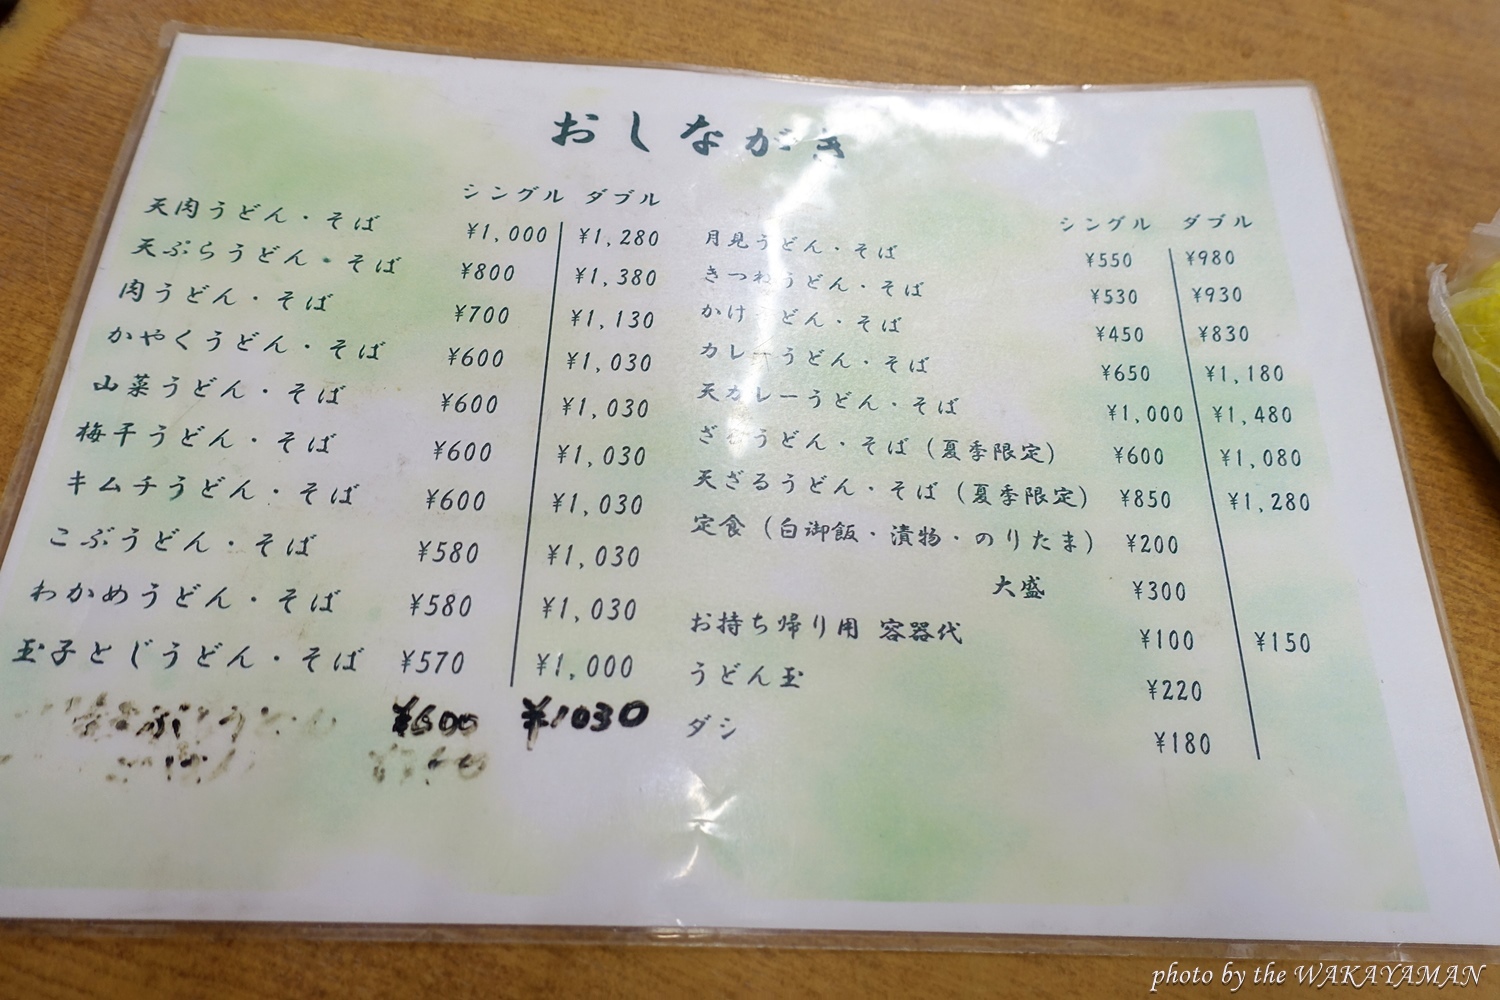 おしながき
シングル ダブル
天肉うどん・そば ¥1,000 ¥1,280
天ぷらうどん・そば ¥800 ¥1,380
肉うどん・そば ¥700 ¥1,130
かやくうどん・そば ¥600 ¥1,030
山菜うどん・そば ¥600 ¥1,030
梅干うどん・そば ¥600 ¥1,030
キムチうどん・そば ¥600 ¥1,030
こぶうどん・そば ¥580 ¥1,030
わかめうどん・そば ¥580 ¥1,030
玉子とじうどん・そば ¥570 ¥1,000
¥600 ¥1030
シングル ダブル
月見うどん・そば ¥550 ¥980
きつねうどん・そば ¥530 ¥930
かけうどん・そば ¥450 ¥830
カレーうどん・そば ¥650 ¥1,180
天カレーうどん・そば ¥1,000 ¥1,480
ざるうどん・そば(夏季限定) ¥600 ¥1,080
天ざるうどん・そば(夏季限定) ¥850 ¥1,280
定食(白御飯・漬物・のりたま) ¥200
大盛 ¥300
お持ち帰り用 容器代 ¥100 ¥150
うどん玉 ¥220
ダシ ¥180
photo by the WAKAYAMAN